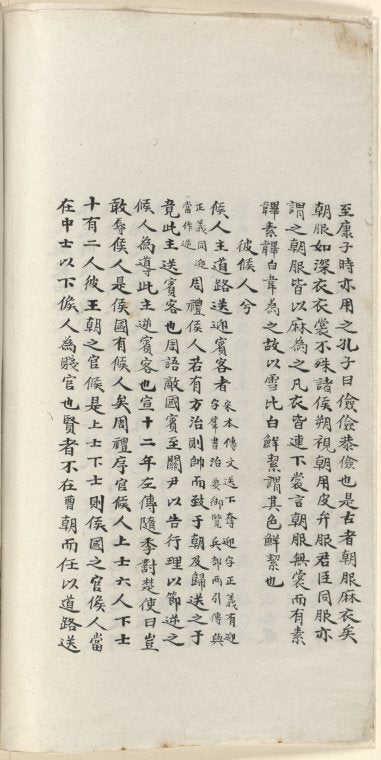 至康子時亦用之孔子曰儉儉恭儉也是古者朝服麻衣矣
朝服如深衣衣裳不殊諸侯朔視朝用皮弁服君臣同服亦
謂之朝服皆以麻為之凡衣皆連下裳言朝服無裳而有素
韠素韠白韋為之故以雪比白鮮絜謂其色鮮絜也
彼候人兮
候人主道路送迎賓客者宋本傳文送下奪迎字正義有迎
字羣書治要御覽兵部兩引傳與
正義同迎
當作逆周禮候人若有方治則帥而致于朝及歸送之于
竟此主送賓客也周語敵國賓至關尹以告行理以節逆之
候人為導此主逆賓客也宣十二年左傳隨季對楚使曰豈
敢辱候人是侯國有候人矣周禮序官候人上士六人下士
十有二人彼王朝之官候是上士下士則侯國之官候人當
在中士以下候人為賤官也賢者不在曹朝而任以道路送